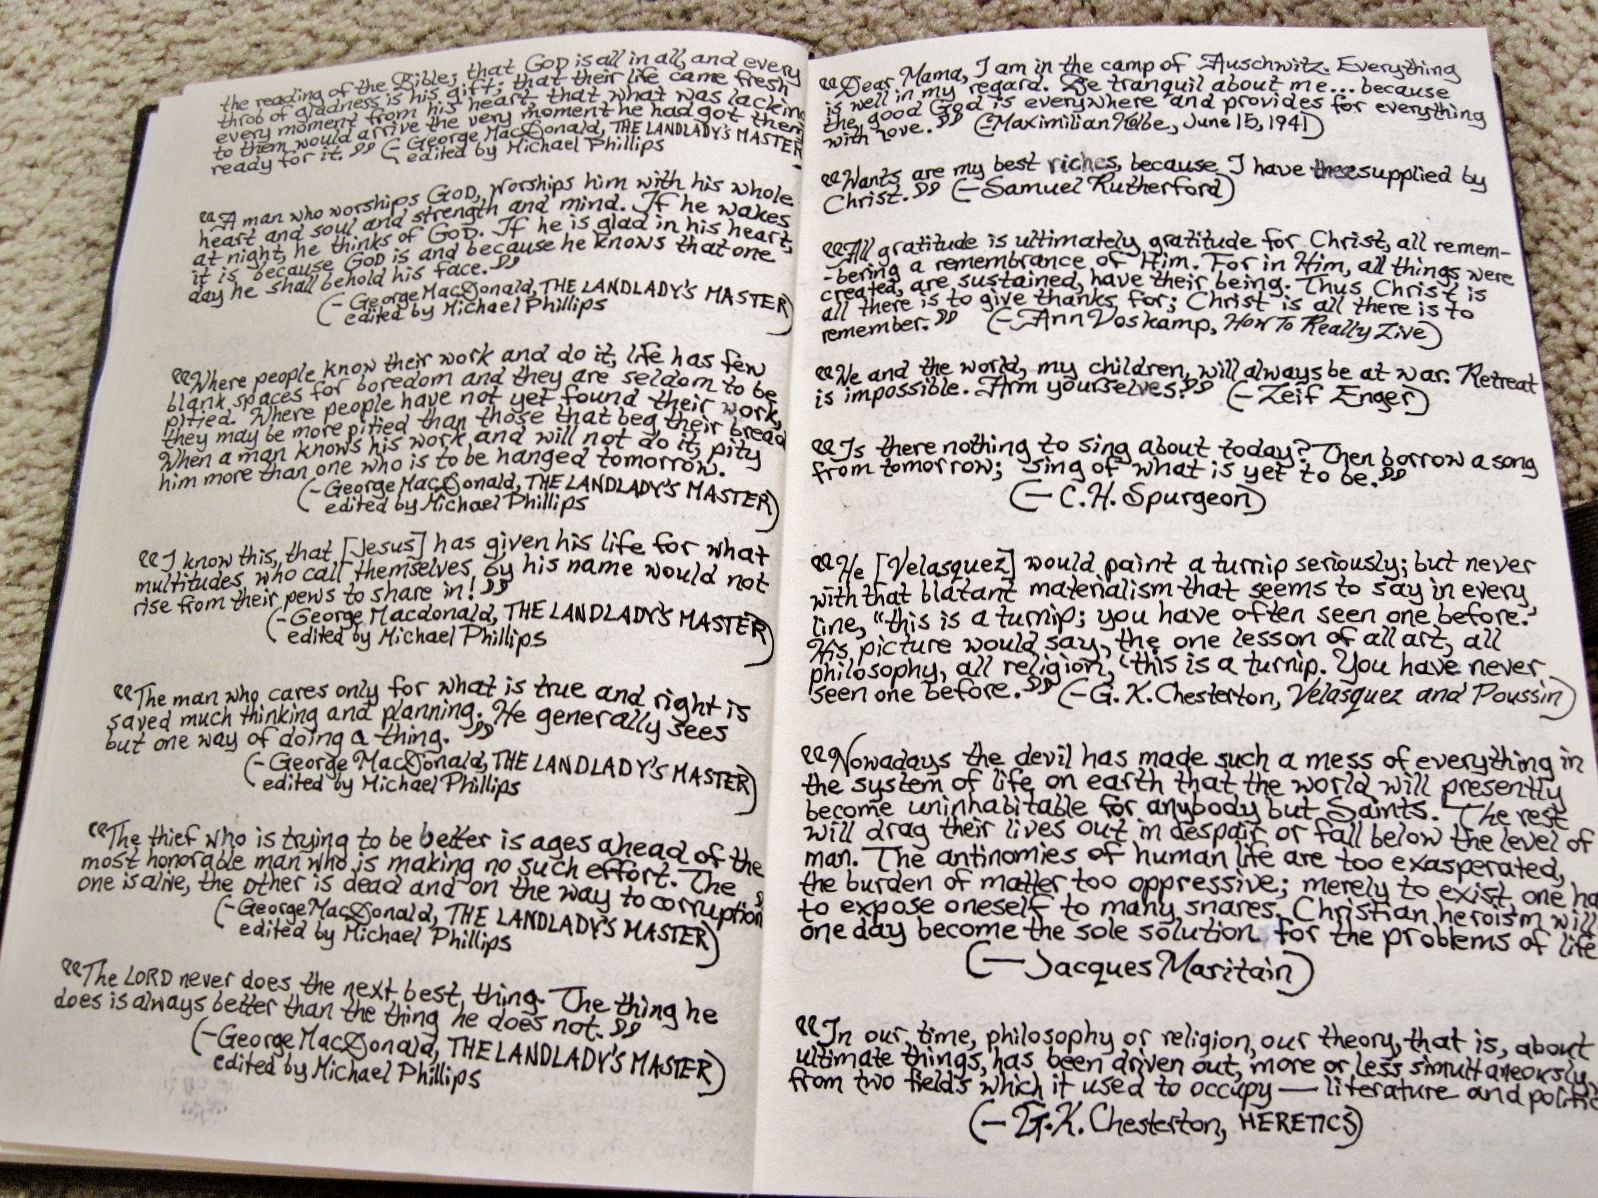 the reading of the Bible; that God is all in all, and every
throb of gladness is his gift; that their life came fresh
every moment from his heart, that what was lacking
to them would arrive the very moment he had got them
ready for it." (- George MacDonald, THE LANDLADY'S MASTER
edited by Michael Phillips
"A man who worships God, worships him with his whole
heart and soul and strength and mind. If he wakes
at night, he thinks of God. If he is glad in his heart,
it is because God is and because he knows that one
day he shall behold his face."
(- George MacDonald, THE LANDLADY'S MASTER)
edited by Michael Phillips
"Where people know their work and do it, life has few
blank spaces for boredom and they are seldom to be
pitied. Where people have not yet found their work,
they may be more pitied than those that beg their bread
When a man knows his work and will not do it, pity
him more than one who is to be hanged tomorrow.
(- George MacDonald, THE LANDLADY'S MASTER)
edited by Michael Phillips
"I know this, that [Jesus] has given his life for what
multitudes who call themselves by his name would not
rise from their pews to share in!"
(- George Macdonald, THE LANDLADY'S MASTER)
edited by Michael Phillips
"The man who cares only for what is true and right is
saved much thinking and planning. He generally sees
but one way of doing a thing."
(- George MacDonald, THE LANDLADY'S MASTER)
edited by Michael Phillips
"The thief who is trying to be better is ages ahead of the
most honorable man who is making no such effort. The
one is alive, the other is dead and on the way to corruption"
(- George MacDonald, THE LANDLADY'S MASTER)
edited by Michael Phillips
"The LORD never does the next best thing. The thing he
does is always better than the thing he does not."
(- George MacDonald, THE LANDLADY'S MASTER)
edited by Michael Phillips
"Dear Mama, I am in the camp of Auschwitz. Everything
is well in my regard. Be tranquil about me... because
the good God is everywhere and provides for everything
with love." (-Maximilian Kolbe, June 15, 1941)
"Wants are my best riches, because I have these supplied by
Christ." (- Samuel Rutherford)
"All gratitude is ultimately gratitude for Christ, all remem-
-bering a remembrance of Him. For in Him, all things were
created, are sustained, have their being. Thus Christ is
all there is to give thanks for; Christ is all there is to
remember." (- Ann Voskamp, How To Really Live)
"We and the world, my children, will always be at war. Retreat
is impossible. Arm yourselves." (- Leif Enger)
"Is there nothing to sing about today? Then borrow a song
from tomorrow; sing of what is yet to be."
(- C.H. Spurgeon)
"He [Velasquez] would paint a turnip seriously; but never
with that blatant materialism that seems to say in every
line, "this is a turnip; you have often seen one before."
His picture would say, the one lesson of all art, all
philosophy, all religion, 'this is a turnip. You have never
seen one before." (- G.K. Chesterton, Velasquez and Poussin)
"Nowadays the devil has made such a mess of everything in
the system of life on earth that the world will presently
become uninhabitable for anybody but Saints. The rest
will drag their lives out in despair or fall below the level of
man. The antinomies of human life are too exasperated,
the burden of matter too oppressive; merely to exist, one ha
to expose oneself to many snares. Christian heroism will
one day become the sole solution for the problems of life
(— Jacques Maritain)
"In our time, philosophy or religion, our theory, that is, about
ultimate things, has been driven out, more or less simultaneously,
from two fields which it used to occupy — literature and politic
(- G.K. Chesterton, HERETICS)